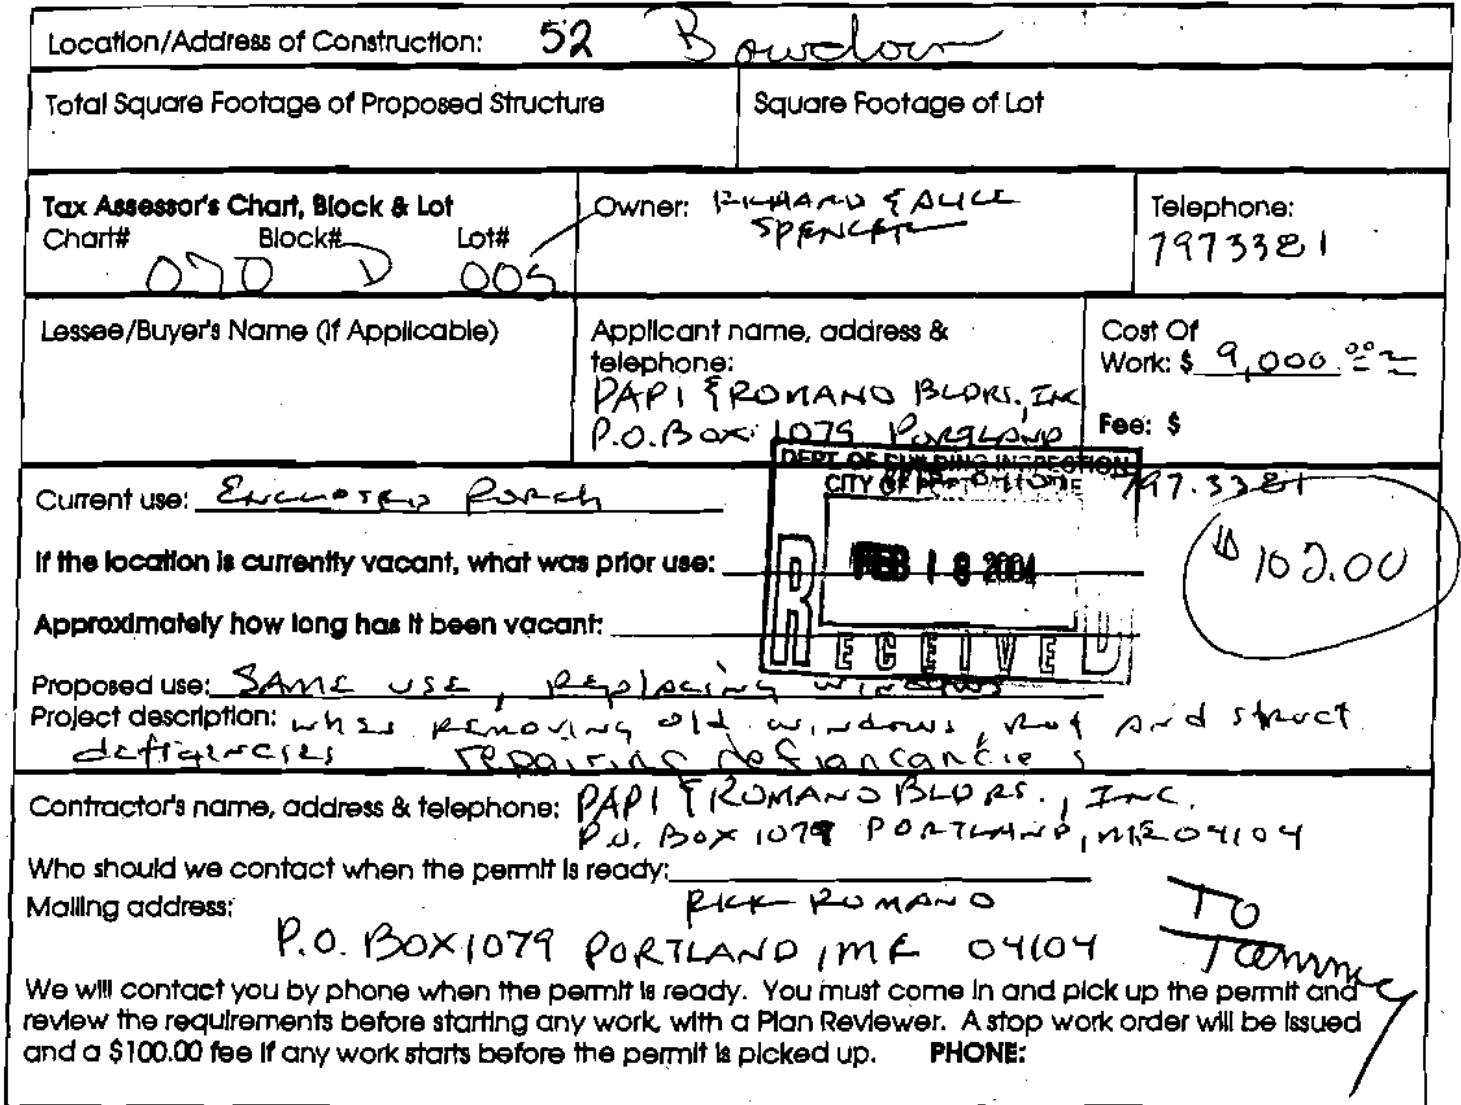 Location/Address of Construction: 52 Bowdoin
Total Square Footage of Proposed Structure
Square Footage of Lot
Tax Assessor's Chart, Block & Lot
Chart# Block# Lot#
070 D 005
Owner: RICHARD & ALICE
SPENCER
Telephone:
7973381
Lessee/Buyer's Name (If Applicable)
Applicant name, address &
telephone:
PAPI & ROMANO BLDRS., INC
P.O. BOX 1079 PORTLAND
Cost Of
Work: $ 9,000.00
Fee: $
797.3381
DEPT. OF BUILDING INSPECTION
CITY OF PORTLAND, ME
FEB 18 2004
RECEIVED
$102.00
Current use: ENCLOSED PORCH
If the location is currently vacant, what was prior use:
Approximately how long has it been vacant:
Proposed use: SAME USE, REPlacing windows
Project description: when REMOVING old windows, Rot And struct
defigencies repairing defiancancies
Contractor's name, address & telephone: PAPI & ROMANO BLDRS., INC.
P.O. BOX 1079 PORTLAND, ME 04104
Who should we contact when the permit is ready:
RICK ROMANO
Mailing address:
P.O. BOX 1079 PORTLAND, ME 04104
To
Tammy
We will contact you by phone when the permit is ready. You must come in and pick up the permit and
review the requirements before starting any work, with a Plan Reviewer. A stop work order will be issued
and a $100.00 fee if any work starts before the permit is picked up. PHONE: